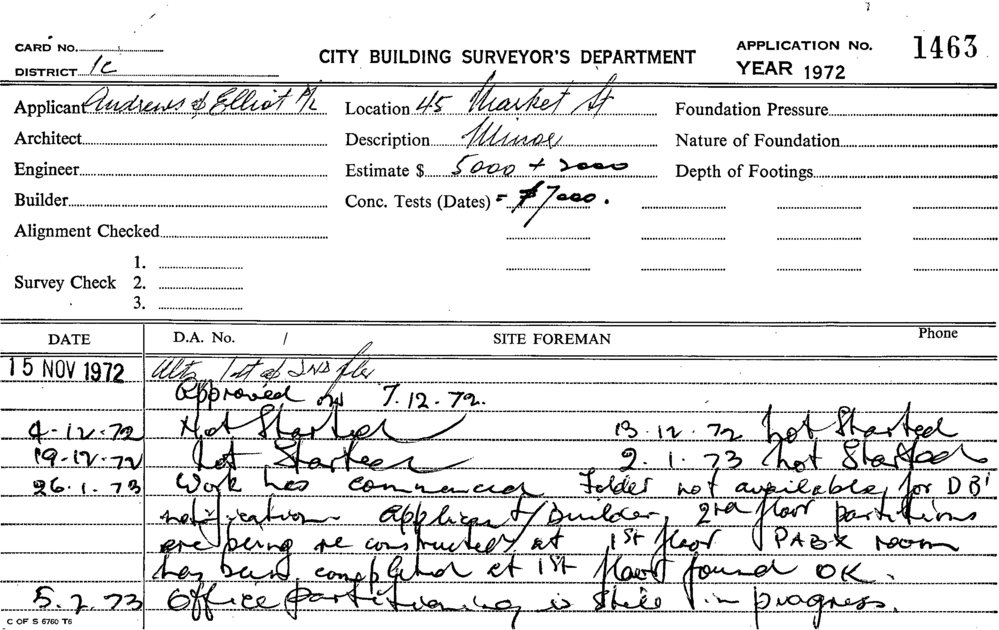 CARD No.
CITY BUILDING SURVEYOR'S DEPARTMENT
APPLICATION No. 1463
DISTRICT 1c
YEAR 1972
Applicant Andrews & Elliot P/L
Location 45 Market St
Foundation Pressure
Architect
Description Minor
Nature of Foundation
Engineer
Estimate $ 5000 + 2000
Depth of Footings
Builder
Conc. Tests (Dates) = $7000.
Alignment Checked
Survey Check
1.
2.
3.
DATE
D.A. No. /
SITE FOREMAN
Phone
15 NOV 1972 Alts 1st & 2ND flr
Approved on 7.12.72.
4-12-72 Not Started 13.12.72 Not Started
19-12-72 Not Started 2.1.73 Not Started
26.1.73 Work has commenced Folder not available for DBI
notification applicant/Builder, 2nd floor partitions
are being reconstructed at 1st floor PABX room
has been completed at 1st floor found OK.
5.2.73 Office partitioning is still in progress.
C OF S 6760 T6